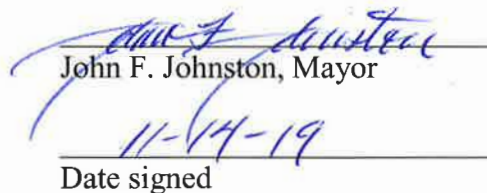 John F. Johnston
John F. Johnston, Mayor
11-14-19
Date signed